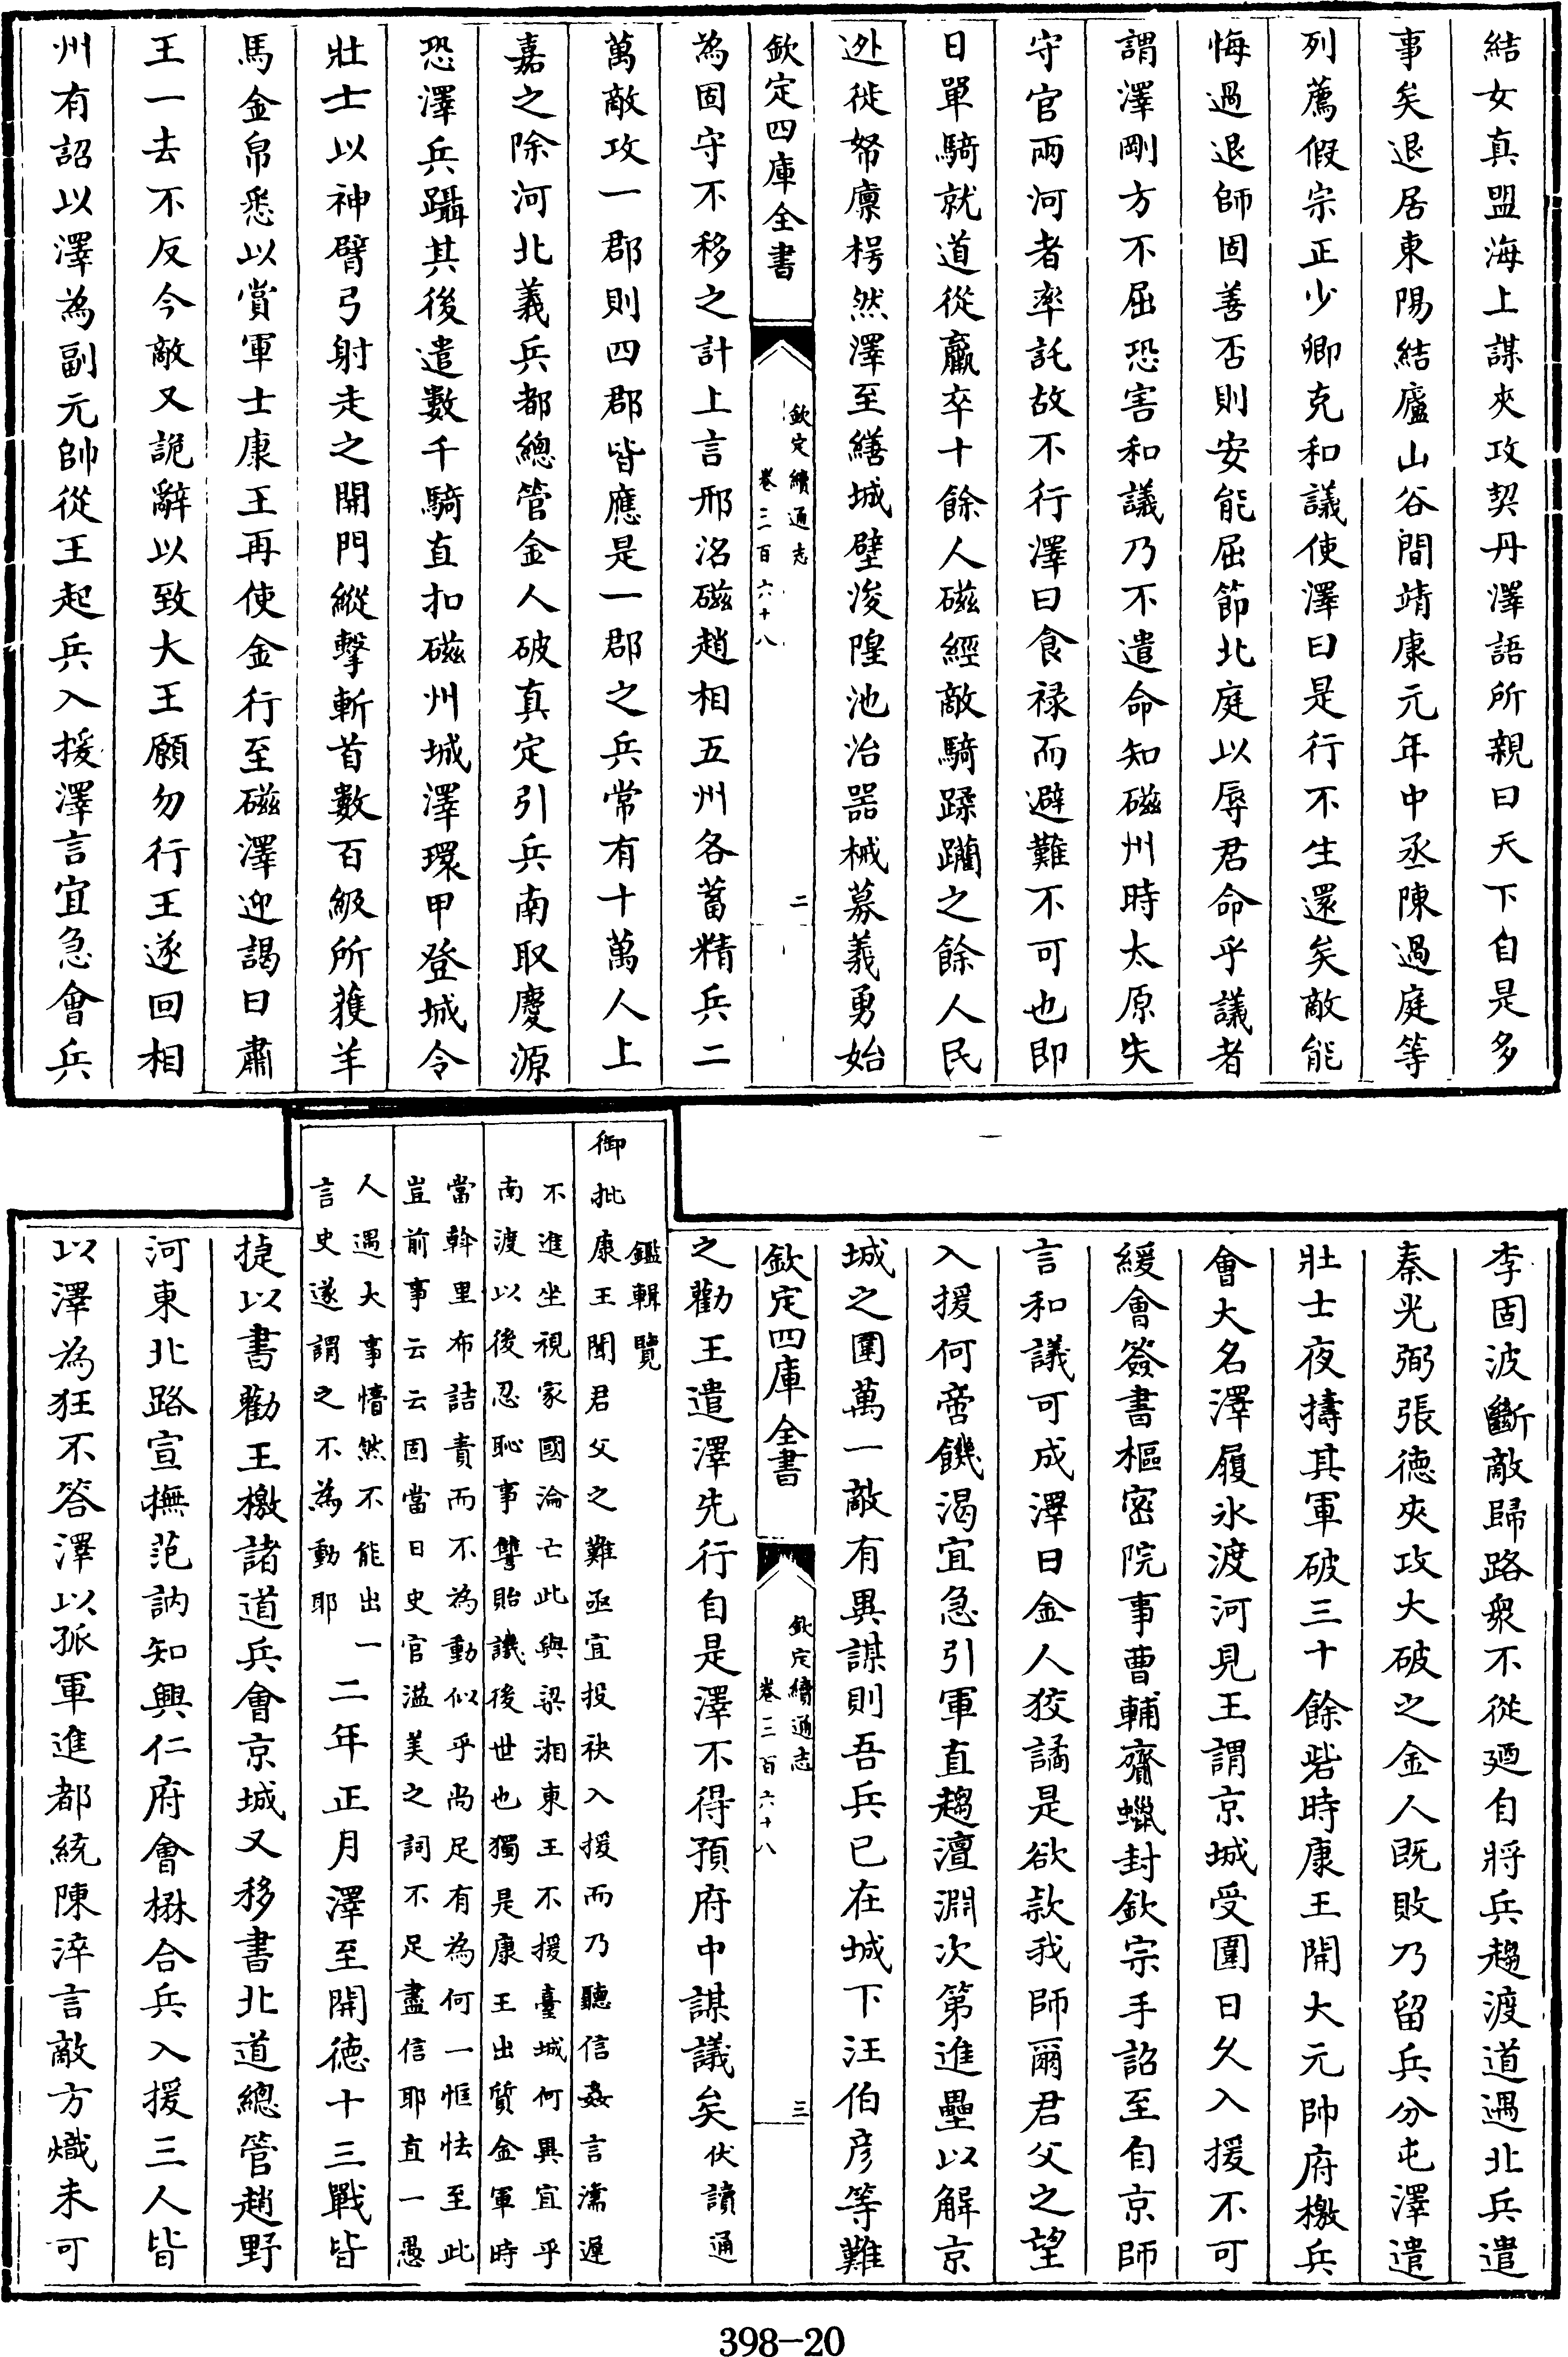 結女真盟海上謀夾攻契丹澤語所親曰天下自是多
事矣退居東陽結廬山谷間靖康元年中丞陳過庭等
列薦假宗正少卿克和議使澤曰是行不生還矣敵能
悔過退師固善否則安能屈節北庭以辱君命乎議者
謂澤剛方不屈恐害和議乃不遣命知磁州時太原失
守官兩河者率託故不行澤曰食禄而避難不可也即
日單騎就道從羸卒十餘人磁經敵騎蹂躪之餘人民
迯徙帑廪枵然澤至繕城壁浚隍池治器械募義勇始
欽定四庫全書
欽定續通志
卷三百六十八
二
為固守不移之計上言邢洺磁趙相五州各蓄精兵二
萬敵攻一郡則四郡皆應是一郡之兵常有十萬人上
嘉之除河北義兵都總管金人破真定引兵南取慶源
恐澤兵躡其後遣數千騎直扣磁州城澤環甲登城令
壯士以神臂弓射走之開門縱擊斬首數百級所獲羊
馬金帛悉以賞軍士康王再使金行至磁澤迎謁曰肅
王一去不反今敵又詭辭以致大王願勿行王遂回相
州有詔以澤為副元帥從王起兵入援澤言宜急會兵
李固波斷敵歸路衆不從廼自將兵趨渡道遇北兵遣
秦光弼張德夾攻大破之金人既敗乃留兵分屯澤遣
壯士夜擣其軍破三十餘砦時康王開大元帥府檄兵
會大名澤履氷渡河見王謂京城受圍日久入援不可
緩會簽書樞密院事曹輔齎蠟封欽宗手詔至自京師
言和議可成澤曰金人狡譎是欲款我師爾君父之望
入援何啻饑渴宜急引軍直趨澶淵次第進壘以解京
城之圍萬一敵有異謀則吾兵已在城下汪伯彦等難
欽定四庫全書
欽定續通志
卷三百六十八
三
之勸王遣澤先行自是澤不得預府中謀議矣伏讀通
鑑輯覽
御批康王聞君父之難亟宜投袂入援而乃聽信姦言濡遲
不進坐視家國淪亡此與梁湘東王不援臺城何異宜乎
南渡以後忍恥事讐貽譏後世也獨是康王出質金軍時
當斡里布詰責而不為動似乎尚足有為何一恇怯至此
豈前事云云固當日史官溢美之詞不足盡信耶直一愚
人遇大事懵然不能出一
言史遂謂之不為動耶
二年正月澤至開德十三戰皆
捷以書勸王檄諸道兵會京城又移書北道總管趙野
河東北路宣撫范訥知興仁府會楙合兵入援三人皆
以澤為狂不答澤以孤軍進都統陳淬言敵方熾未可
398-20